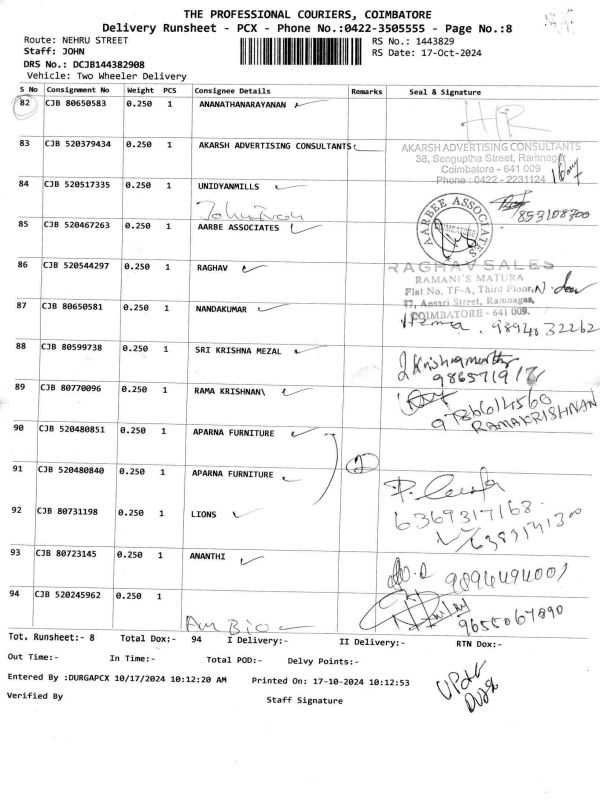 THE PROFESSIONAL COURIERS, COIMBATORE
Delivery Runsheet - PCX - Phone No.:0422-3505555 - Page No.:8
Route: NEHRU STREET RS No.: 1443829
Staff: JOHN RS Date: 17-Oct-2024
DRS No.: DCJB144382908
Vehicle: Two Wheeler Delivery
S No Consignment No Weight PCS Consignee Details Remarks Seal & Signature
82 CJB 80650583 0.250 1 ANANATHANARAYANAN
83 CJB 520379434 0.250 1 AKARSH ADVERTISING CONSULTANTS
AKARSH ADVERTISING CONSULTANTS
38, Senguptha Street, Ramnagar
Coimbatore - 641 009
Phone : 0422 - 2231124
84 CJB 520517335 0.250 1 UNIDYANMILLS
AARBEE ASSOCIATES
853108700
85 CJB 520467263 0.250 1 AARBE ASSOCIATES
86 CJB 520544297 0.250 1 RAGHAV
RAGHAV SALES
RAMANI'S MATURA
Flat No. TF-A, Third Floor,
17, Ansari Street, Ramnagar,
COIMBATORE - 641 009.
87 CJB 80650581 0.250 1 NANDAKUMAR
Hema . 9894832262
88 CJB 80599738 0.250 1 SRI KRISHNA MEZAL
Krishnamurthy
89 CJB 80770096 0.250 1 RAMA KRISHNAN\
9786614560
RAMAKRISHNAN
90 CJB 520480851 0.250 1 APARNA FURNITURE
2
91 CJB 520480840 0.250 1 APARNA FURNITURE
6369317168
92 CJB 80731198 0.250 1 LIONS
93 CJB 80723145 0.250 1 ANANTHI
9894494001
94 CJB 520245962 0.250 1
Am Bio
9655067890
Tot. Runsheet:- 8 Total Dox:- 94 I Delivery:- II Delivery:- RTN Dox:-
Out Time:- In Time:- Total POD:- Delvy Points:-
Entered By :DURGAPCX 10/17/2024 10:12:20 AM Printed On: 17-10-2024 10:12:53
Verified By Staff Signature